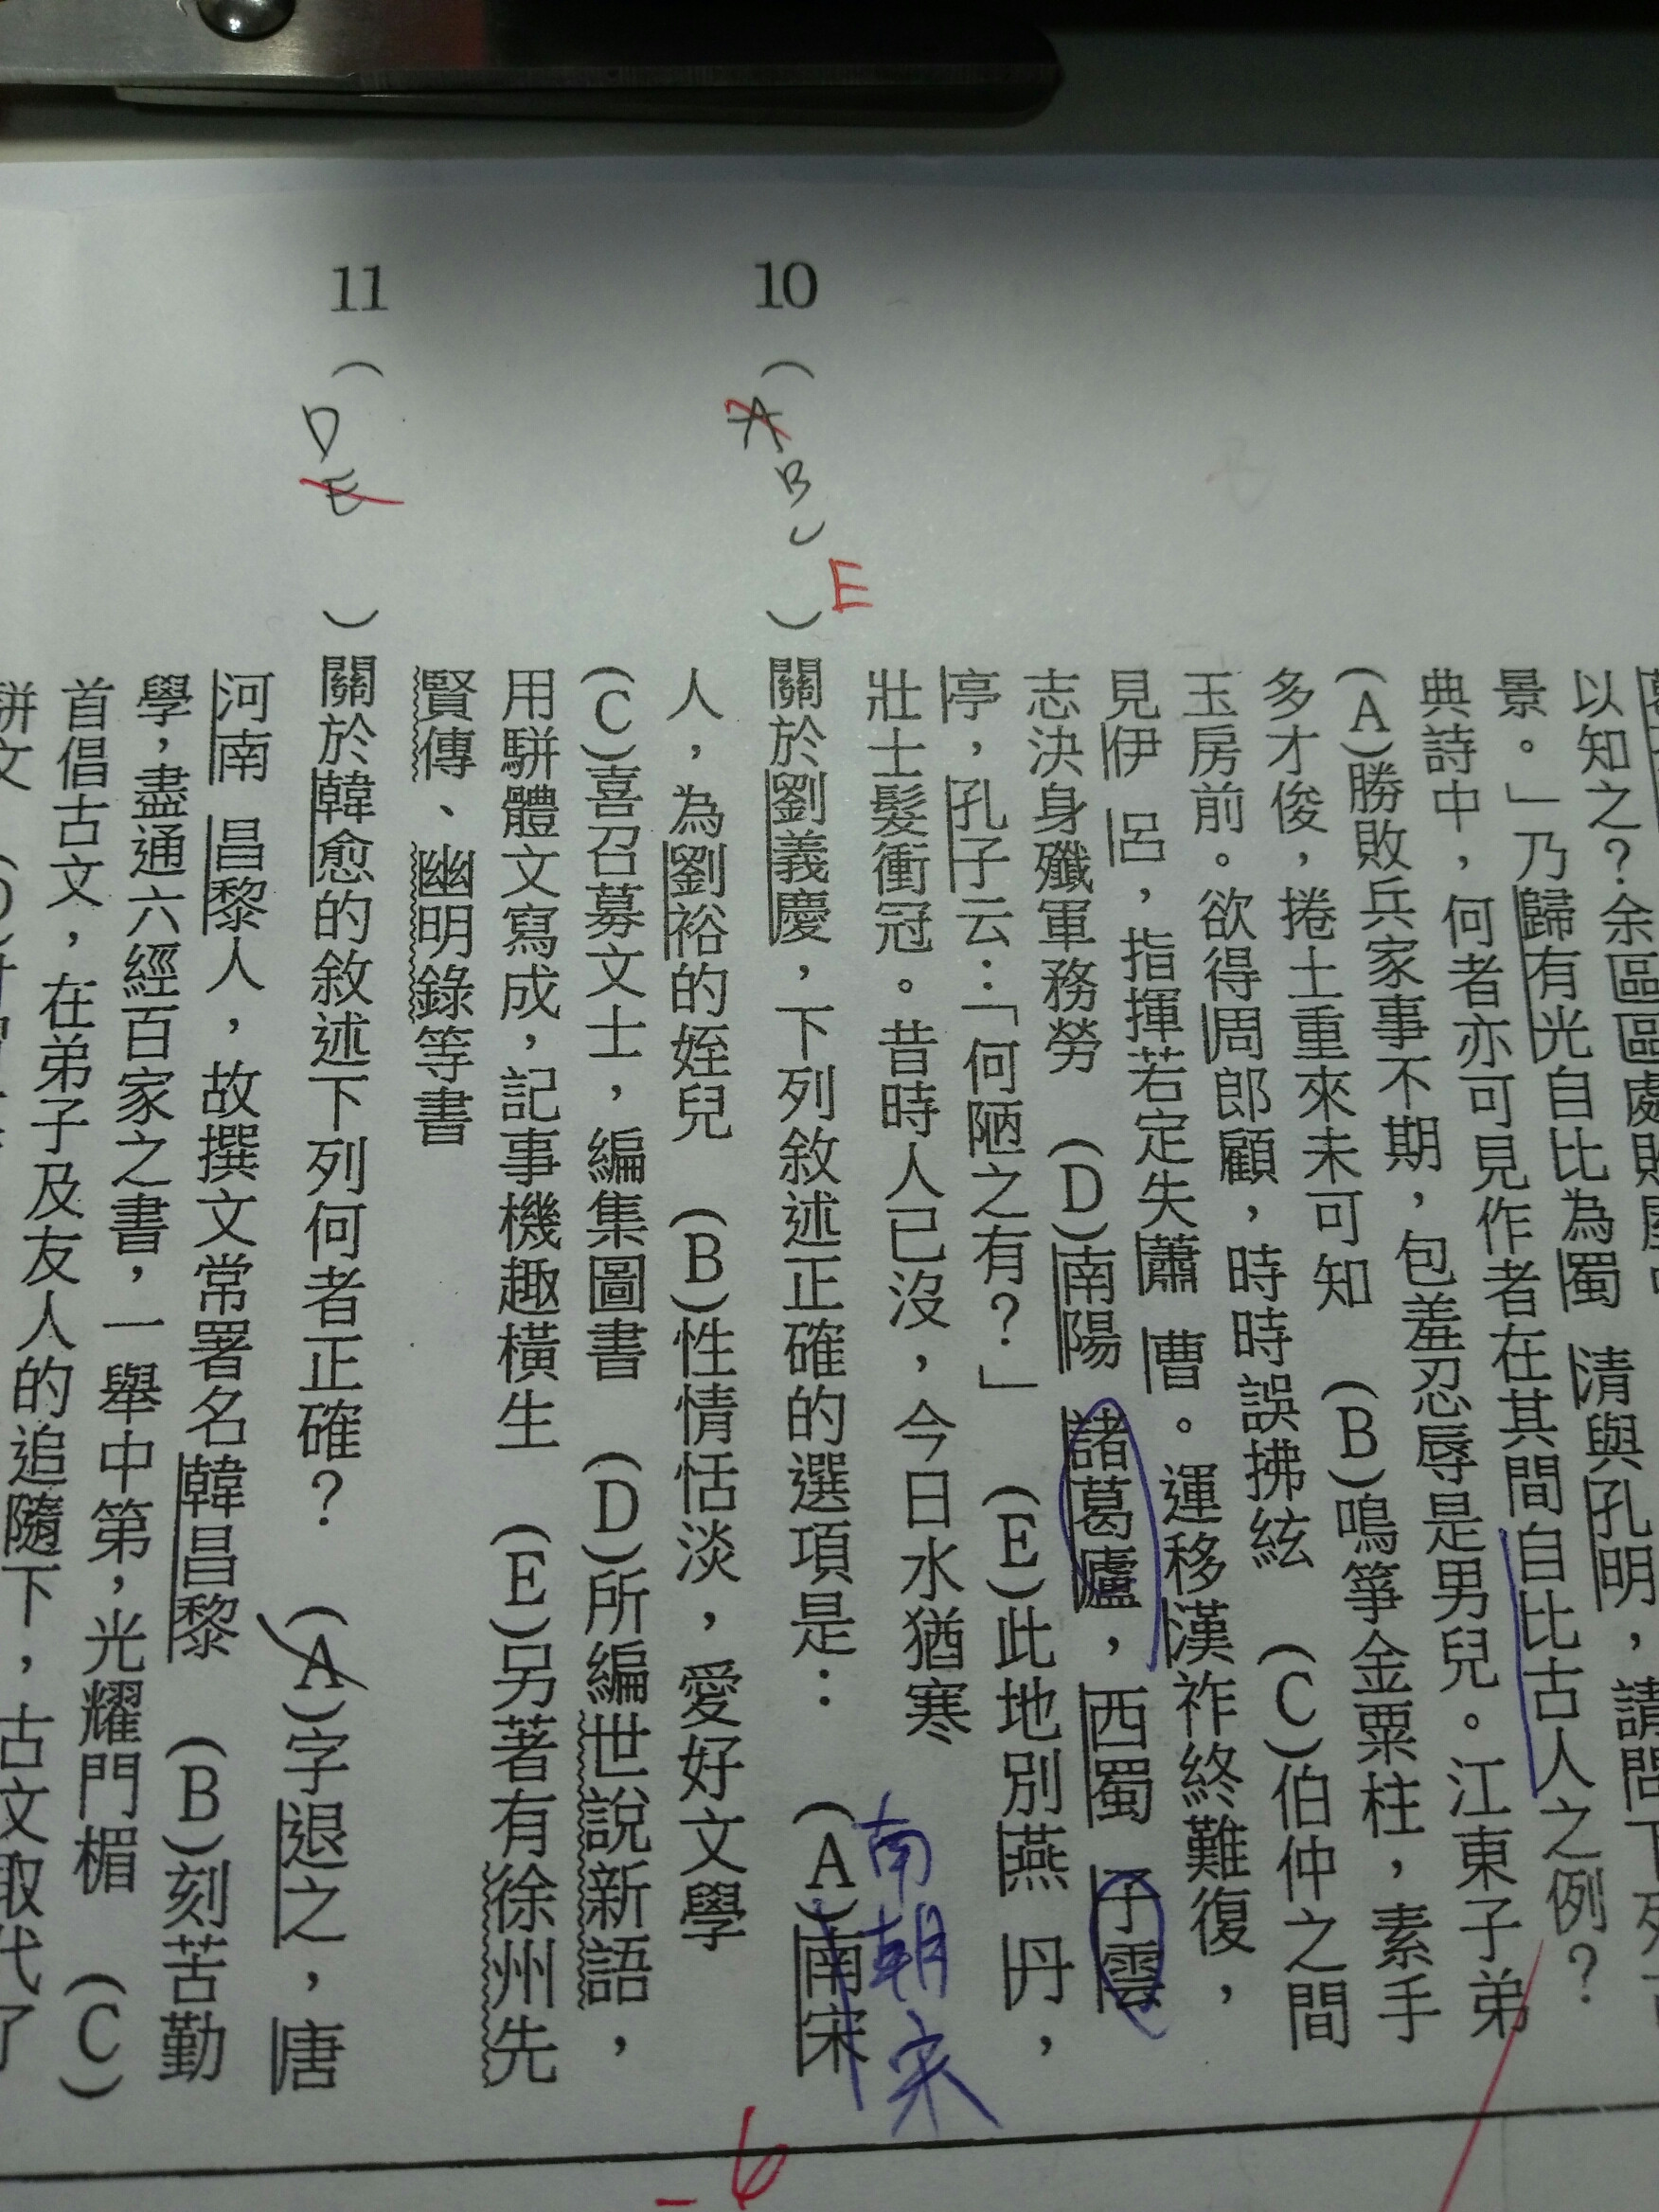 以知之？余區區處敗屋中
景。」乃歸有光自比為蜀 清與孔明，請問下列
典詩中，何者亦可見作者在其間自比古人之例？
(A)勝敗兵家事不期，包羞忍辱是男兒。江東子弟
多才俊，捲土重來未可知 (B)鳴箏金粟柱，素手
玉房前。欲得周郎顧，時時誤拂絃 (C)伯仲之間
見伊 呂，指揮若定失蕭 曹。運移漢祚終難復，
志決身殲軍務勞 (D)南陽 諸葛廬，西蜀 子雲
亭，孔子云：「何陋之有？」 (E)此地別燕 丹，
壯士髮衝冠。昔時人已沒，今日水猶寒
南朝宋
10 (A B C E)關於劉義慶，下列敘述正確的選項是： (A)南宋
人，為劉裕的姪兒 (B)性情恬淡，愛好文學
(C)喜召募文士，編集圖書 (D)所編世說新語，
用駢體文寫成，記事機趣橫生 (E)另著有徐州先
賢傳、幽明錄等書
-6
11 (D E)關於韓愈的敘述下列何者正確？ (A)字退之，唐
河南 昌黎人，故撰文常署名韓昌黎 (B)刻苦勤
學，盡通六經百家之書，一舉中第，光耀門楣 (C)
首倡古文，在弟子及友人的追隨下，古文取代了
駢文